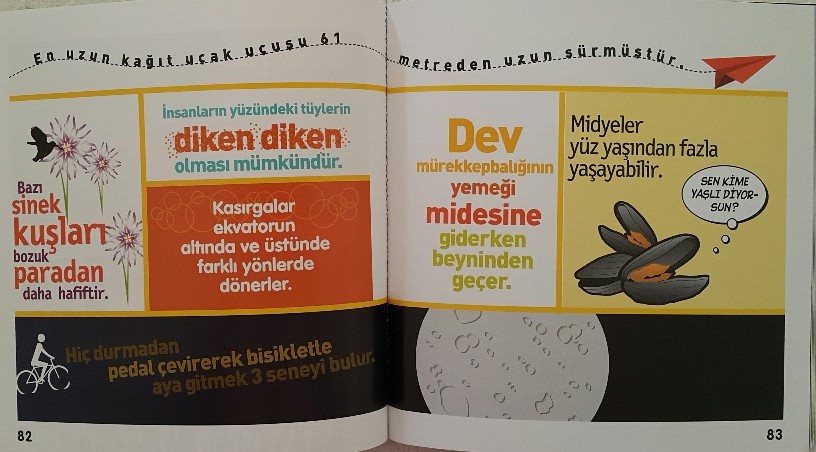 En uzun kağıt uçak uçuşu 61 metreden uzun sürmüştür.
Bazı
sinek
kuşları
bozuk
paradan
daha hafiftir.
İnsanların yüzündeki tüylerin
diken diken
olması mümkündür.
Kasırgalar
ekvatorun
altında ve üstünde
farklı yönlerde
dönerler.
Hiç durmadan
pedal çevirerek bisikletle
aya gitmek 3 seneyi bulur.
82
Dev
mürekkepbalığının
yemeği
midesine
giderken
beyninden
geçer.
Midyeler
yüz yaşından fazla
yaşayabilir.
SEN KİME
YAŞLI DİYOR-
SUN?
83